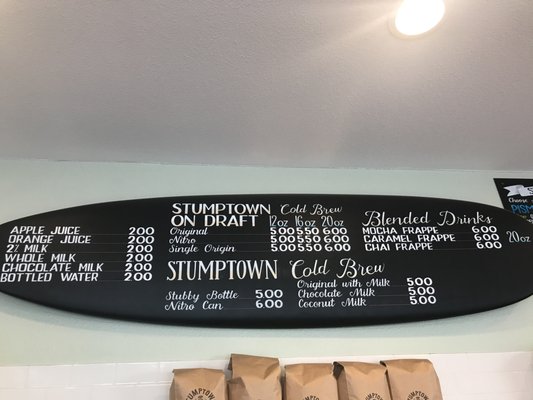 APPLE JUICE 200
ORANGE JUICE 200
2% MILK 200
WHOLE MILK 200
CHOCOLATE MILK 200
BOTTLED WATER 200
STUMPTOWN Cold Brew
ON DRAFT 12oz 16oz 20oz
Original 500 550 600
Nitro 500 550 600
Single Origin 500 550 600
Blended Drinks
MOCHA FRAPPE 6.00
CARAMEL FRAPPE 6.00
CHAI FRAPPE 6.00
20oz
STUMPTOWN Cold Brew
Stubby Bottle 5.00
Nitro Can 6.00
Original with Milk 5.00
Chocolate Milk 5.00
Coconut Milk 5.00
Choose
PISM
STUMPTOWN